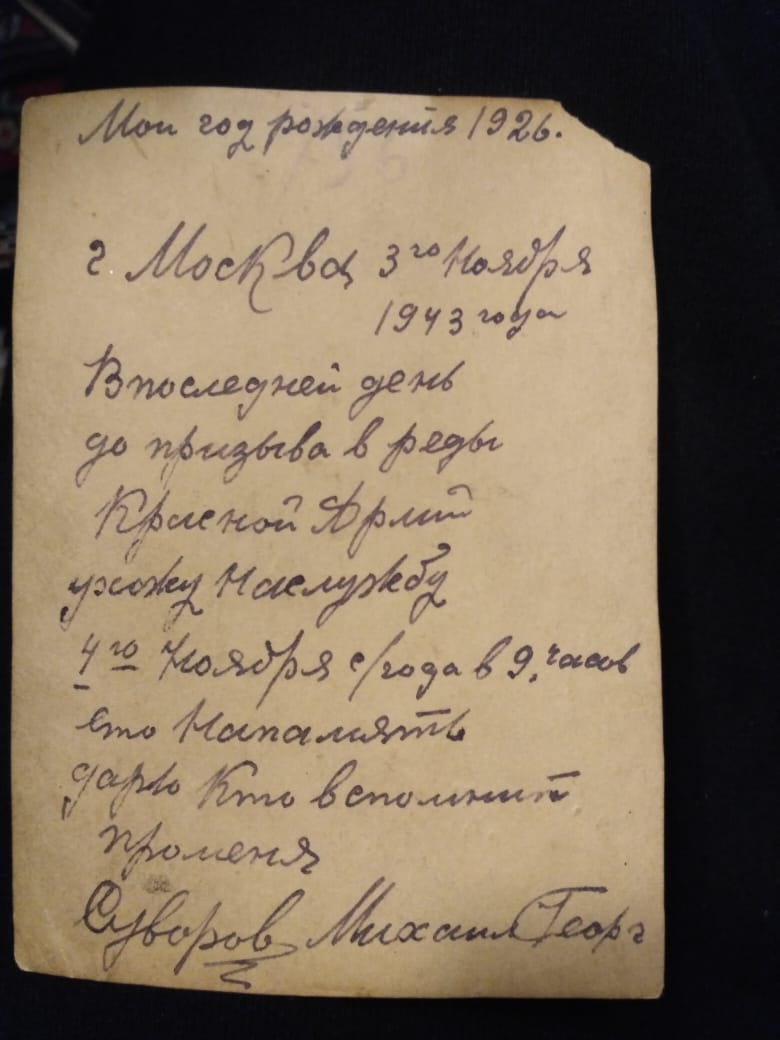 Мой год рождения 1926.
г Москва 3го Ноября
1943 года
Впоследней день
до призыва в реды
Красной Армий
ухожу Наслужбу
4го Ноября с/года в 9, часов
ето Напамять
дарю Кто вспомнит
променя
Суворов Михаил Георг